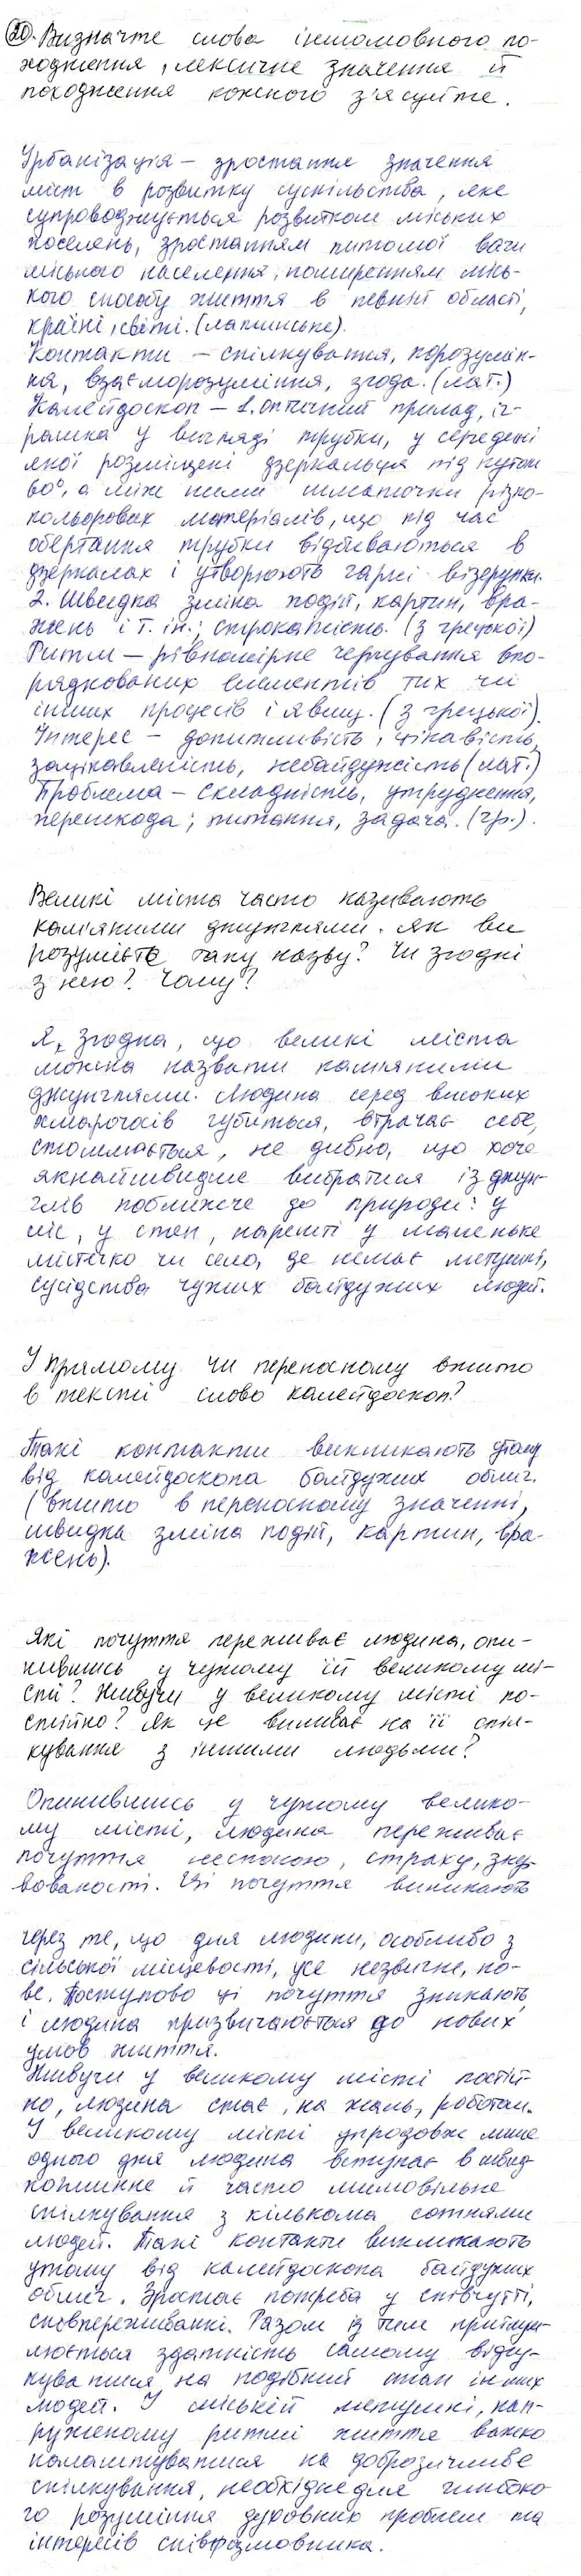 20. Визначте слова іншомовного по-
ходження, лексичне значення й
походження кожного з'ясуйте.
Урбанізація – зростання значення
міст в розвитку суспільства, яке
супроводжується розвитком міських
поселень, зростанням питомої ваги
міського населення, поширенням місь-
кого способу життя в певній області,
країні, світі. (латинське).
Контакти – спілкування, порозумін-
ня, взаєморозуміння, згода. (лат.)
Калейдоскоп – 1. оптичний прилад, іг-
рашка у вигляді трубки, у середені
якої розміщені дзеркальця під кутом
60°, а між ними шматочки різно-
кольорових матеріалів, що під час
обертання трубки відбиваються в
дзеркалах і утворюють гарні візерунки.
2. Швидка зміна подій, картин, вра-
жень і т. ін.; строкатість. (з грецької)
Ритм – рівномірне чергування впо-
рядкованих елементів тих чи
інших процесів і явищ. (з грецької).
Інтерес – допитливість, цікавість,
зацікавленість, небайдужість (лат.)
Проблема – складність, утруднення,
перешкода; питання, задача. (гр.).
Великі міста часто називають
кам'яними джунглями. Як ви
розумієте таку назву? Чи згодні
з нею? Чому?
Я, згодна, що великі міста
можна назвати кам'яними
джунглями. Людина серед високих
хмарочосів губиться, втрачає себе,
стомлюється, не дивно, що хоче
якнайшвидше вибратися із джун-
глів поближче до природи: у
ліс, у степ, нарешті у маленьке
містечко чи село, де немає метушні,
сусідства чужих байдужих людей.
У прямому чи переносному вжито
в тексті слово калейдоскоп?
Такі контакти викликають утому
від калейдоскопа байдужих облич.
(вжито в переносному значенні,
швидка зміна подій, картин, вра-
жень).
Які почуття переживає людина, опи-
нившись у чужому їй великому мі-
сті? Живучи у великому місті по-
стійно? Як це впливає на її спіл-
кування з іншими людьми?
Опинившись у чужому велико-
му місті, людина переживає
почуття неспокою, страху, знер-
вованості. Ці почуття виникають
через те, що для людини, особливо з
сільської місцевості, усе незвичне, но-
ве. Поступово ці почуття зникають,
і людина призвичаюється до нових
умов життя.
Живучи у великому місті постій-
но, людина стає, на жаль, роботом.
У великому місті упродовж лише
одного дня людина вступає в швид-
коплинне й часто мимовільне
спілкування з кількома сотнями
людей. Такі контакти викликають
утому від калейдоскопа байдужих
облич. Зростає потреба у співчутті,
співпереживанні. Разом із тим притуп-
люється здатність самому відгу-
куватися на подібний стан інших
людей. У міській метушні, нап-
руженому ритмі життя важко
налаштуватися на доброзичливе
спілкування, необхідне для глибоко-
го розуміння духовних проблем та
інтересів співрозмовника.